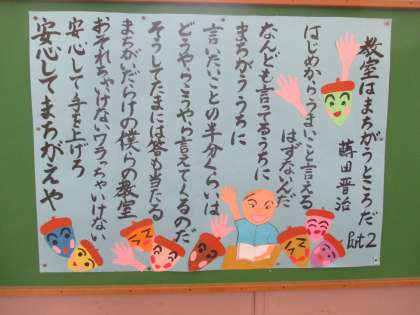 教室はまちがうところだ
蒔田晋治
Part 2
はじめからうまいこと言える
はずないんだ
なんども言ってるうちに
まちがううちに
言いたいことの半分くらいは
どうやらこうやら言えてくるのだ
そうしてたまには答も当たる
まちがいだらけの僕らの教室
おそれちゃいけないワラっちゃいけない
安心して手を上げろ
安心してまちがえや